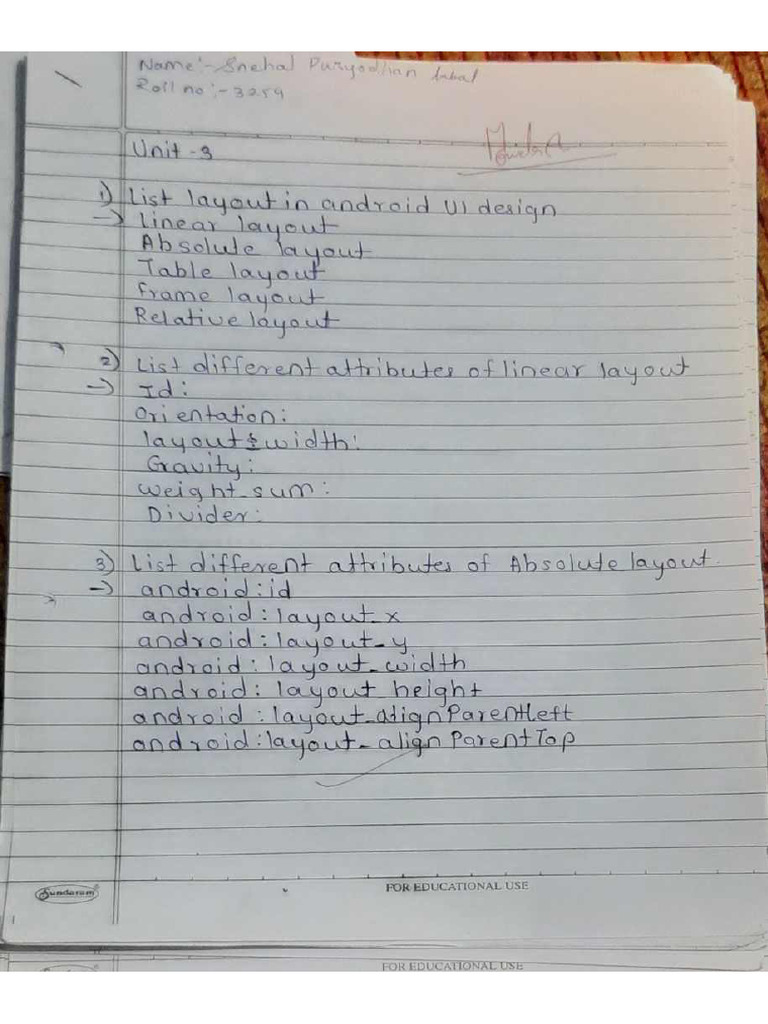 Name:- Snehal Duryodhan
Roll no:- 3259
Unit -3
1) List layout in android UI design
→ Linear layout
Absolute layout
Table layout
frame layout
Relative layout
2) List different attributes of linear layout
→ Id:
Orientation:
layout width:
Gravity:
weight_sum:
Divider:
3) List different attributes of Absolute layout.
→ android:id
android:layout_x
android:layout_y
android:layout_width
android: layout height
android :layout_alignParentleft
android:layout_alignParentTop
Sundaram
FOR EDUCATIONAL USE
FOR EDUCATIONAL USE